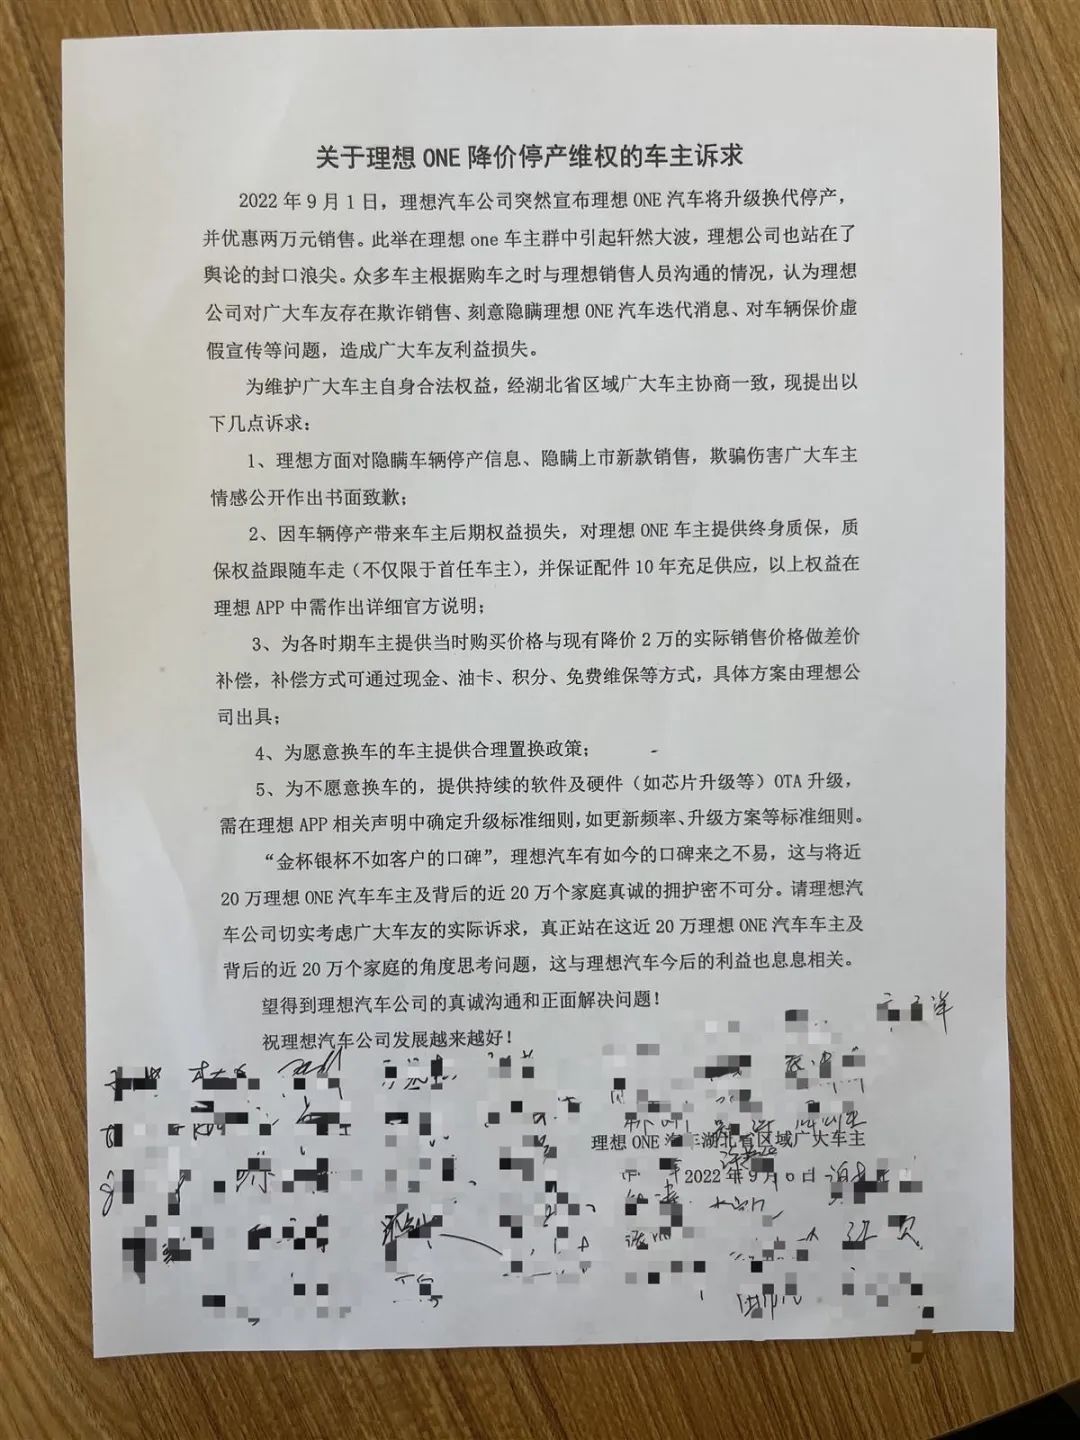 关于理想 ONE 降价停产维权的车主诉求
2022 年 9 月 1 日，理想汽车公司突然宣布理想 ONE 汽车将升级换代停产，
并优惠两万元销售。此举在理想 one 车主群中引起轩然大波，理想公司也站在了
舆论的封口浪尖。众多车主根据购车之时与理想销售人员沟通的情况，认为理想
公司对广大车友存在欺诈销售、刻意隐瞒理想 ONE 汽车迭代消息、对车辆保价虚
假宣传等问题，造成广大车友利益损失。
为维护广大车主自身合法权益，经湖北省区域广大车主协商一致，现提出以
下几点诉求：
1、理想方面对隐瞒车辆停产信息、隐瞒上市新款销售，欺骗伤害广大车主
情感公开作出书面致歉；
2、因车辆停产带来车主后期权益损失，对理想 ONE 车主提供终身质保，质
保权益跟随车走（不仅限于首任车主），并保证配件 10 年充足供应，以上权益在
理想 APP 中需作出详细官方说明；
3、为各时期车主提供当时购买价格与现有降价 2 万的实际销售价格做差价
补偿，补偿方式可通过现金、油卡、积分、免费维保等方式，具体方案由理想公
司出具；
4、为愿意换车的车主提供合理置换政策；
5、为不愿意换车的，提供持续的软件及硬件（如芯片升级等）OTA 升级，
需在理想 APP 相关声明中确定升级标准细则，如更新频率、升级方案等标准细则。
“金杯银杯不如客户的口碑”，理想汽车有如今的口碑来之不易，这与将近
20 万理想 ONE 汽车车主及背后的近 20 万个家庭真诚的拥护密不可分。请理想汽
车公司切实考虑广大车友的实际诉求，真正站在这近 20 万理想 ONE 汽车车主及
背后的近 20 万个家庭的角度思考问题，这与理想汽车今后的利益也息息相关。
望得到理想汽车公司的真诚沟通和正面解决问题！
祝理想汽车公司发展越来越好！
理想 ONE 汽车湖北省区域广大车主
2022 年 9 月 日